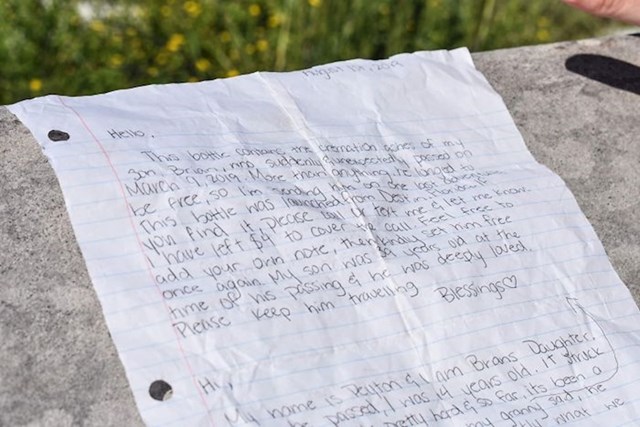 August 1st, 2019
Hello,
This bottle contains the cremation ashes of my
son Brian, who suddenly & unexpectedly passed on
March 9, 2019. More than anything, he longed to
be free, so I'm sending him on one last
This bottle has launched from Destin,
you find it please call or text me & let me know.
I have left $ to cover the call. Feel free to
add your own note, then kindly set him free
once again. My son was years old at the
time of his passing & he was deeply loved.
Please keep him travelling Blessings♡
Hi,
My name is Peyton & I am Brians Daughter.
he passed, I was 14 years old. It struck
pretty hard & so far, its been a
my granny said, he
what we